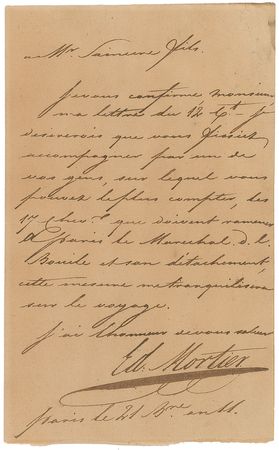 a Mr. Saincere fils.
Je vous confirme, monsieur
ma lettre du 12 Ct. - Je
desirerois que vous fissiez
accompagner par un de
vos gens, sur lequel vous
pouvez le plus compter, les
17 chev. que doivent ramener
à Paris le Marechal d. l.
Bouille et son détachement,
cette mesure me tranquilisera
sur le voyage.
J'ai l'honneur de vous saluer
Ed. Mortier
Paris le 21 Bre. an 11.